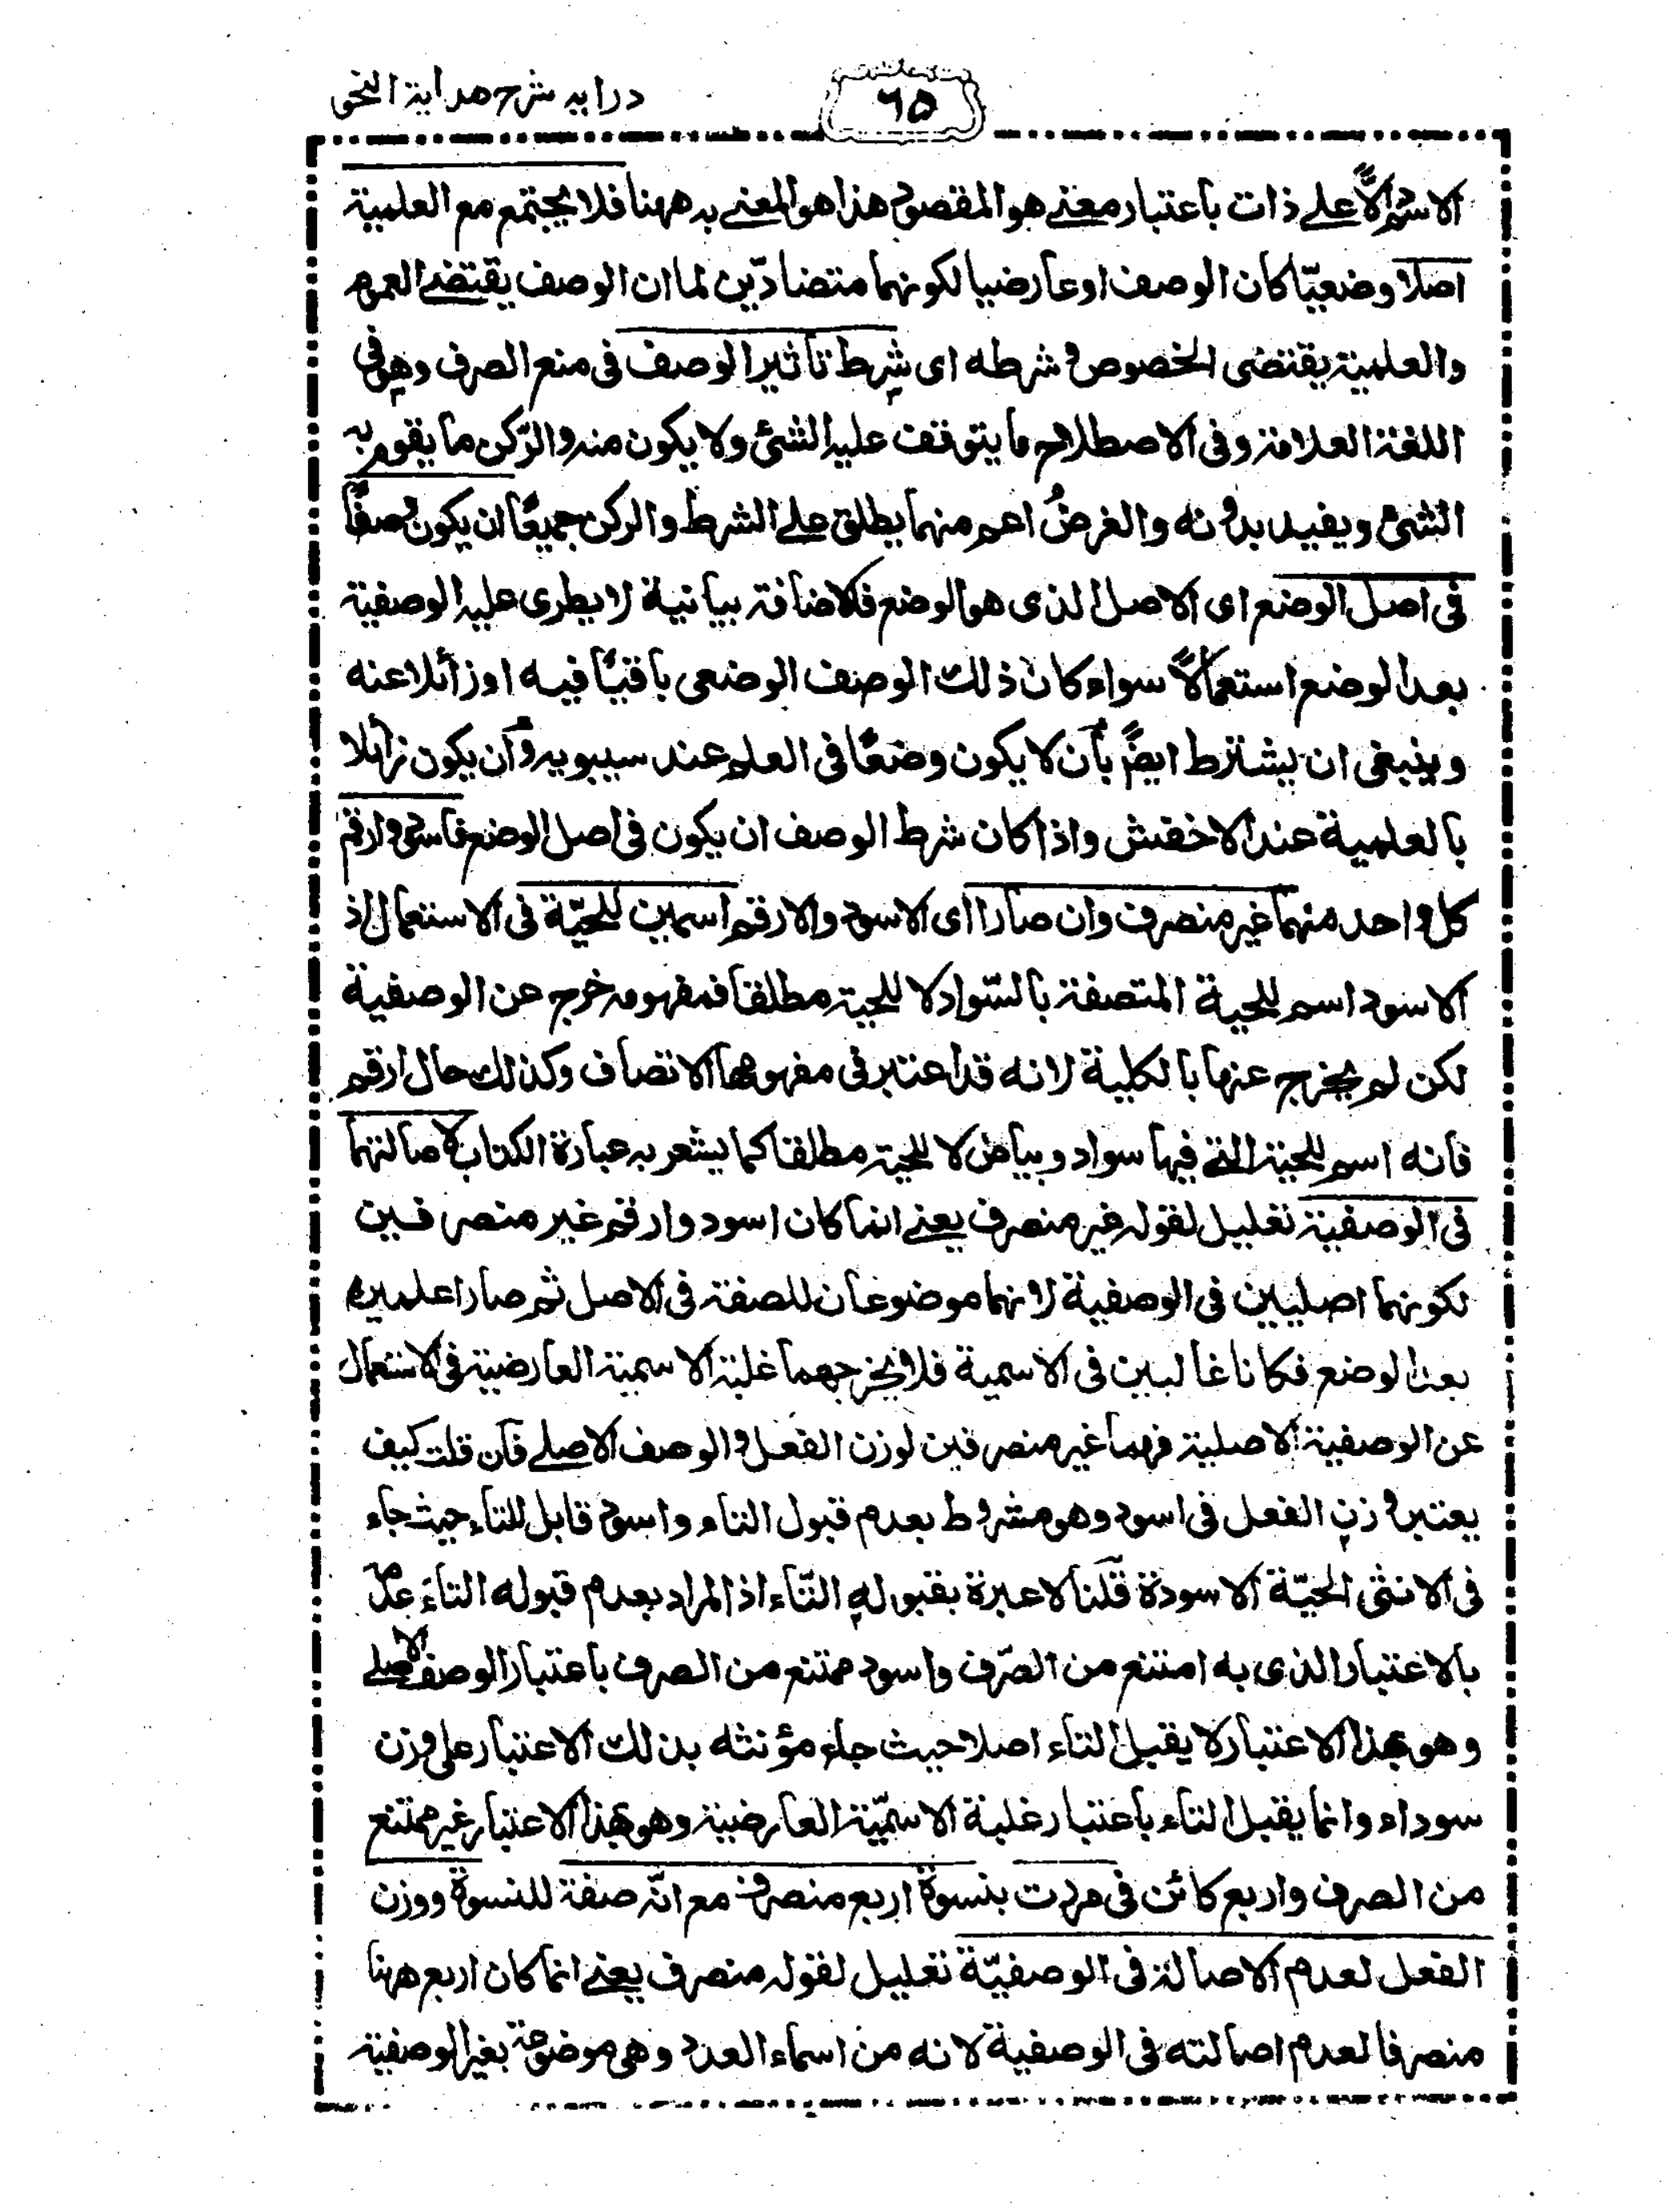 درايه شرح هداية النحو
٦٥
الاسم دالّا على ذات باعتبار معنى هو المقصود هذا هو المعنى به ههنا فلا يجتمع مع العلمية
اصلا وضعيّا كان الوصف او عارضيا لكونهما متضادّين لما ان الوصف يقتضى العموم
والعلمية يقتضى الخصوص و شرطه اى شرط تأثير الوصف فى منع الصرف وهو فى
اللغة العلامة وفى الاصطلاح ما يتوقف عليه الشئ ولا يكون منه والرّكن ما يقوم به
الشئ ويفيد بدونه والغرضُ اعم منهما يطلق على الشرط والركن جميعًا ان يكون وصفًا
فى اصل الوضع اى الاصل الذى هو الوضع فالاضافة بيانية لا يطرى عليه الوصفية
بعد الوضع استعمالاً سواء كان ذلك الوصف الوضعى باقيًا فيه او زائلا عنه
وينبغى ان يشترط ايضًا بأن لا يكون وضعًا فى العلم عند سيبويه وأن يكون زائلا
بالعلمية عند الاخفش واذا كان شرط الوصف ان يكون فى اصل الوضع فاسود وارقم
كل واحد منهما غير منصرف وان صارا اى الاسود والارقم اسمين للحيّة فى الاستعمال اذ
الاسود اسم للحية المتصفة بالسّواد لا للحية مطلقا فمفهومه خرج عن الوصفية
لكن لم يخرج عنها بالكلية لانه قد اعتبر فى مفهومها الاتصاف وكذلك حال ارقم
فانه اسم للحية التى فيها سواد وبياض لا للحية مطلقا كما يشعر به عبارة الكتاب لاصالتهما
فى الوصفية تعليل لقوله غير منصرف يعنى انما كان اسود وارقم غير منصرفين
لكونهما اصليين فى الوصفية لانهما موضوعان للصفة فى الاصل ثم صارا علمين
بعد الوضع فكانا غالبين فى الاسمية فلا يخرجهما غلبة الاسمية العارضية فى الاستعمال
عن الوصفية الاصلية فهما غير منصرفين لوزن الفعل والوصف الاصلى فان قلت كيف
يعتبر وزن الفعل فى اسود وهو مشروط بعدم قبول التاء واسود قابل للتاء حيث جاء
فى الانثى الحيّة الاسودة قلنا لا عبرة بقبوله التّاء اذ المراد بعدم قبوله التاء عدمه
بالاعتبار الذى به امتنع من الصّرف واسود ممتنع من الصرف باعتبار الوصف الاصلى
وهو بهذا الاعتبار لا يقبل التاء اصلا حيث جاء مؤنثه بذلك الاعتبار على وزن
سوداء وانما يقبل التاء باعتبار غلبة الاسمّية العارضية وهو بهذا الاعتبار غير ممتنع
من الصرف واربع كائن فى مررت بنسوة اربع منصرف مع انّه صفة للنسوة ووزن
الفعل لعدم الاصالة فى الوصفيّة تعليل لقوله منصرف يعنى انما كان اربع ههنا
منصرفا لعدم اصالته فى الوصفية لانه من اسماء العدد وهى موضوعة بغير الوصفية